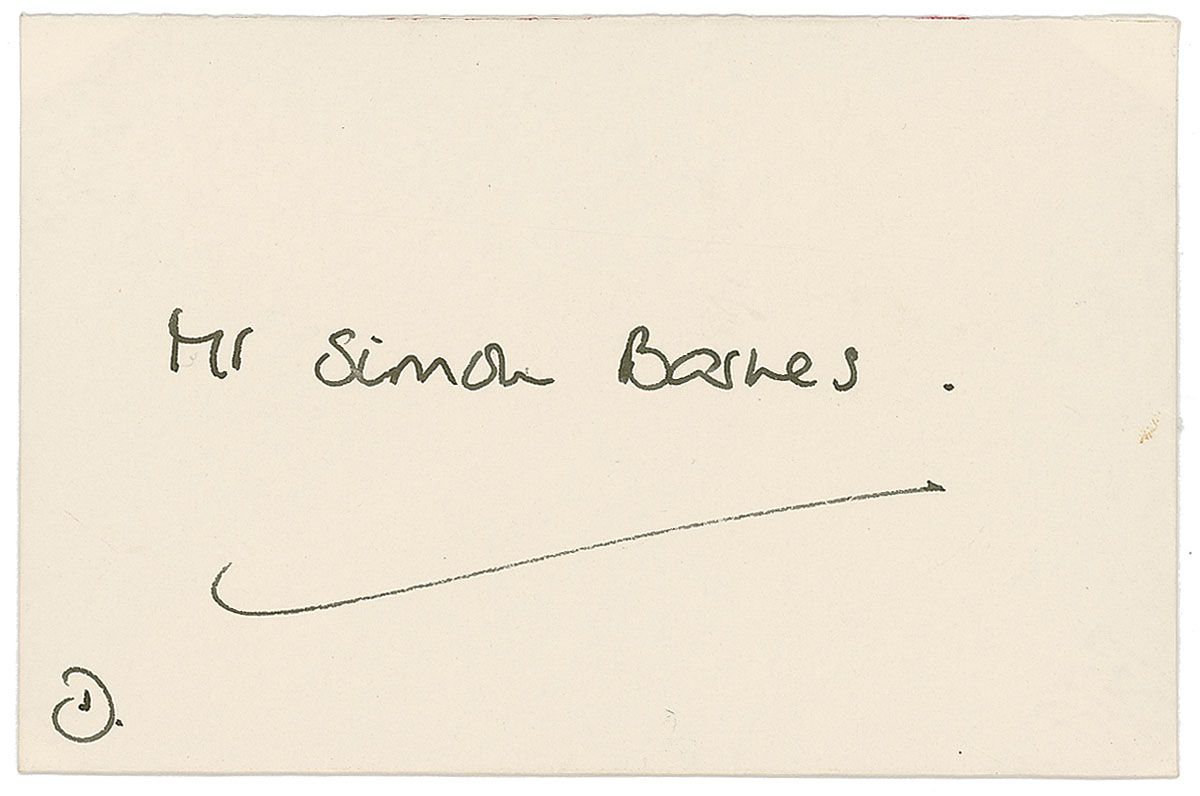 Mr Simon Barnes .
D.